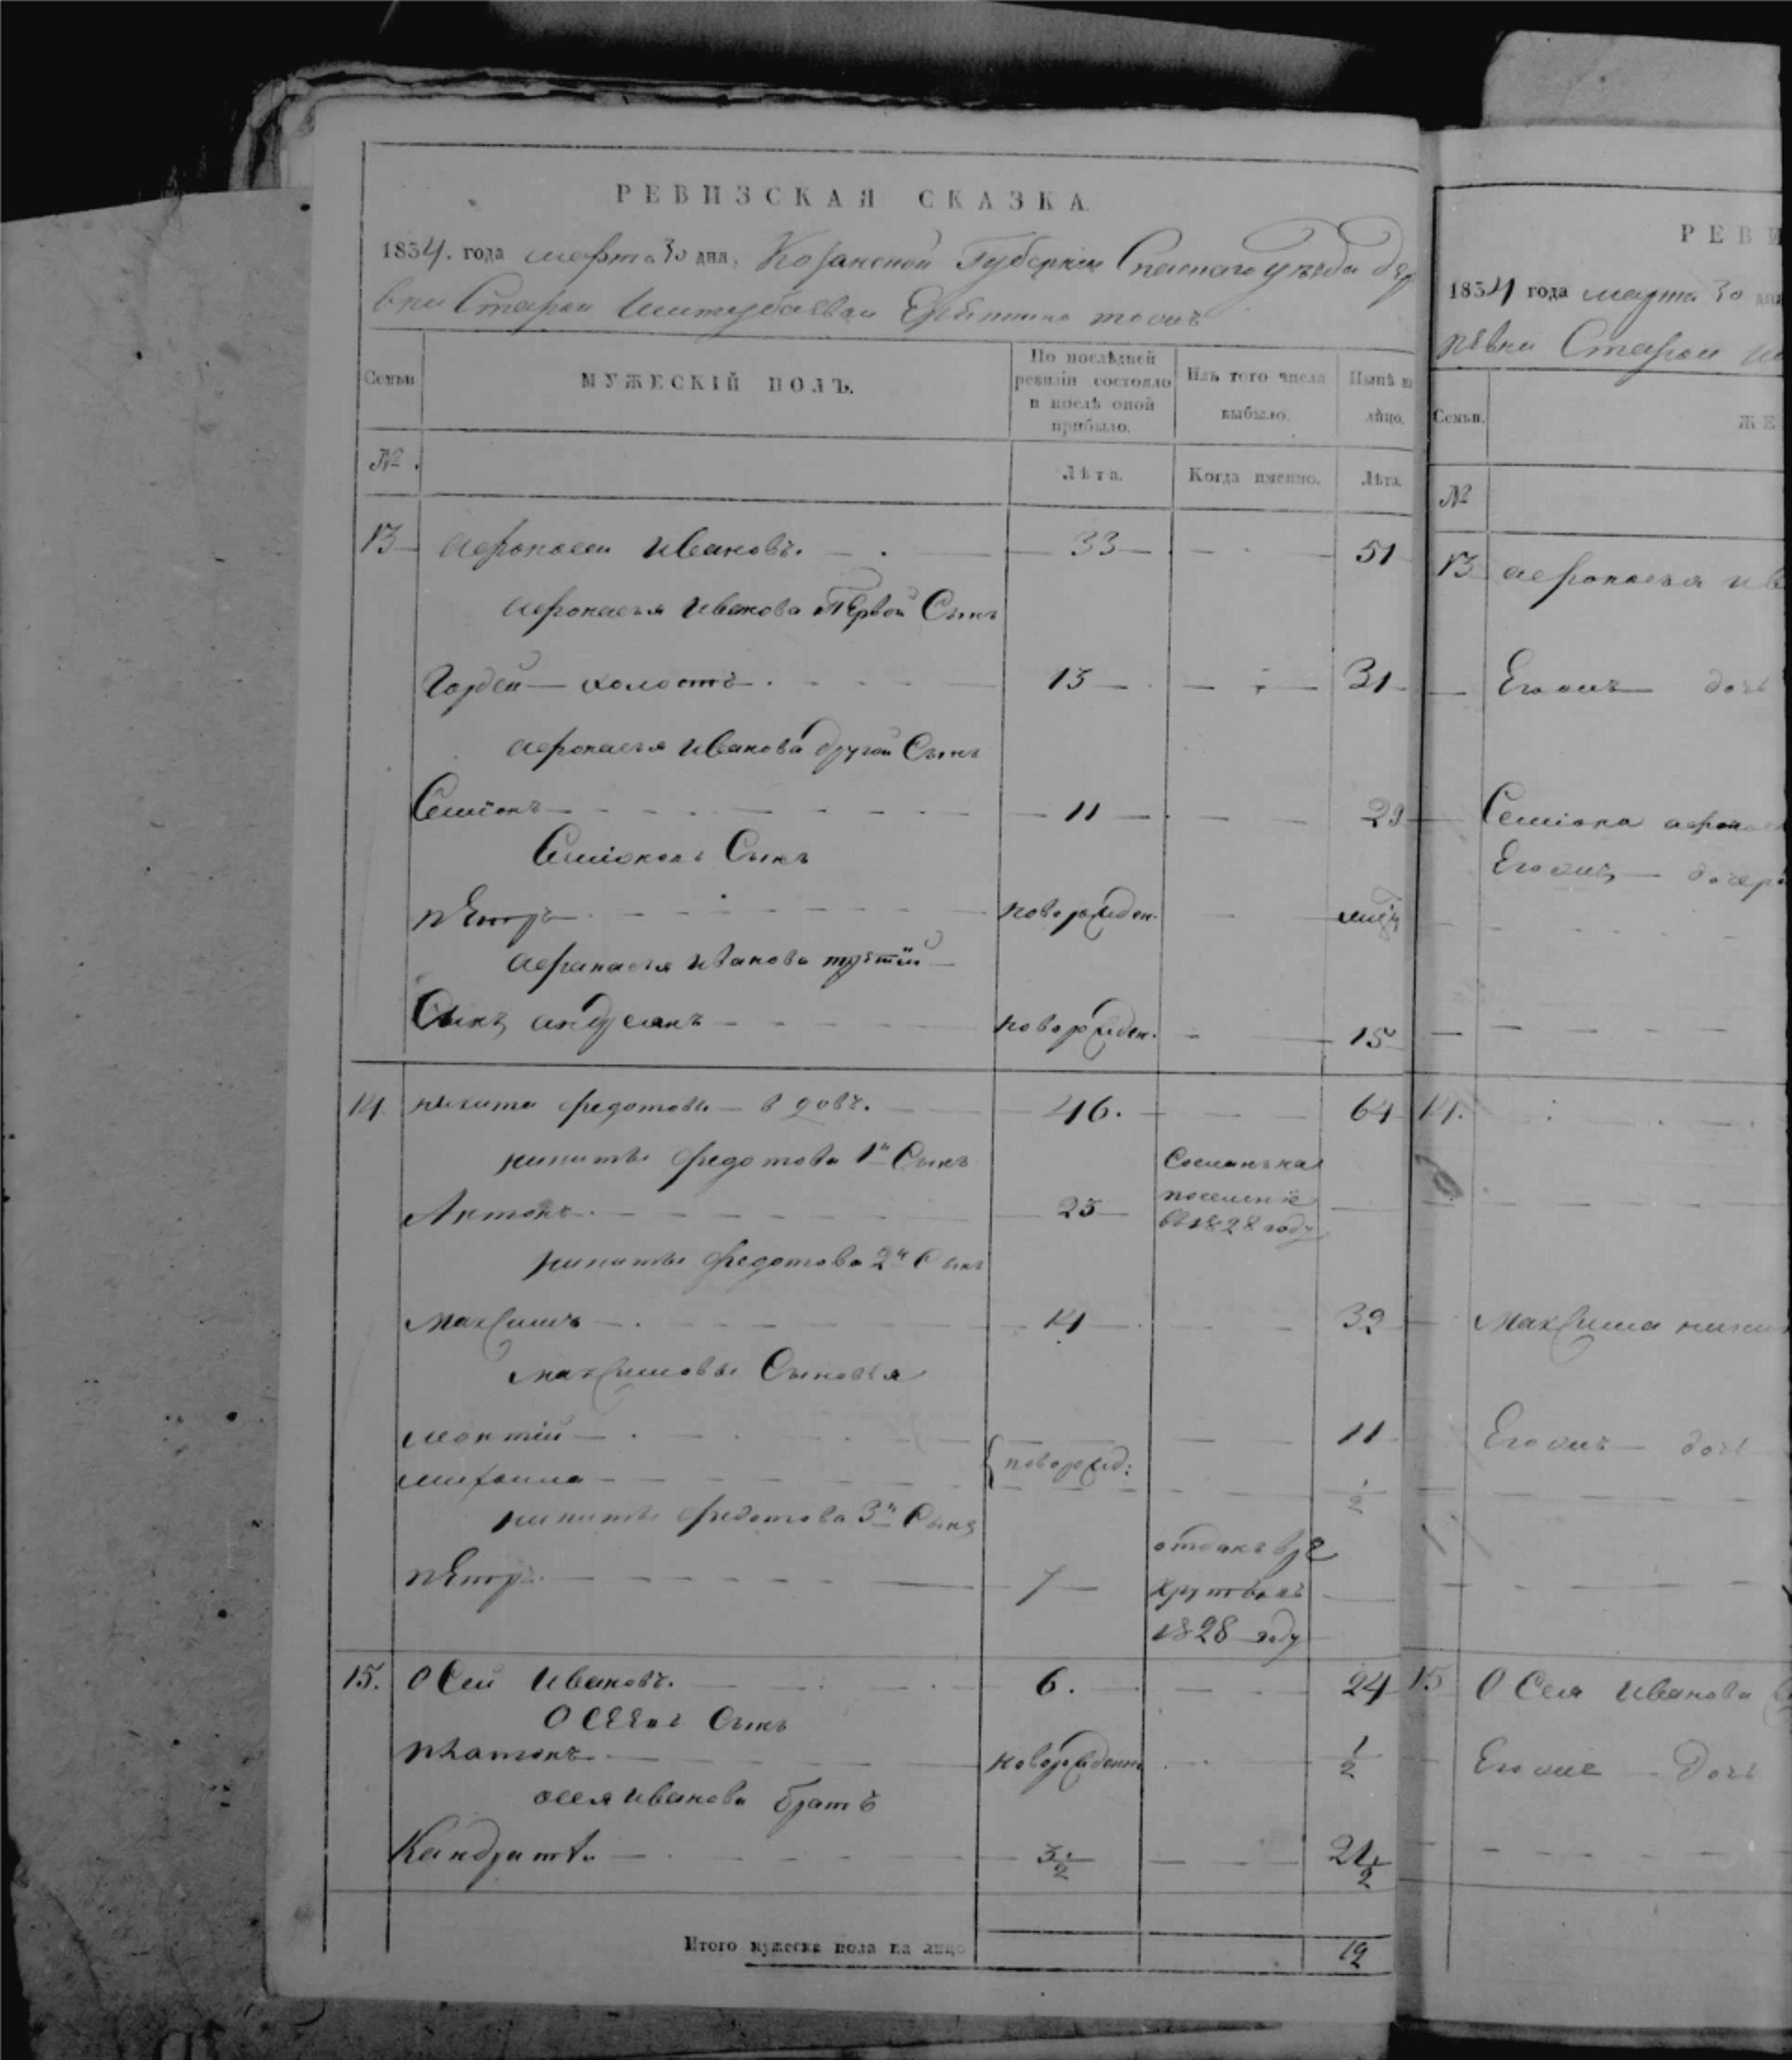 РЕВИЗСКАЯ СКАЗКА
1834. года марта 30 дня, Казанской Губернии Спаскаго уезда дер
вни Старои
Семьи.
МУЖЕСКІЙ ПОЛЪ.
По послѣдней ревизіи состояло и послѣ оной прибыло.
Изъ того числа выбыло.
Нынѣ на лицо.
№
Лѣта.
Когда именно.
Лѣта.
13 Афонасеи Ивановъ. 33 51
Афонасья Иванова пЕрвои Сынъ
Гордеи холостъ 13 31
Афонасья Иванова другои Сынъ
Семіонъ 11 29
Семіоновъ Сынъ
пЕтръ новорожден.
Афанасья Иванова третіи
Сынъ новорожден. 15
14 никита федотовъ вдовъ. 46. 64
никиты федотова 1й Сынъ
Антонъ 25 Сосланъ на
поселеніе
въ 1828 году
никиты федотова 2й Сынъ
Максимъ 14 32
максимовы Сыновья
11
михаила новорожд: 1/2
никиты федотова 3й Сынъ
пЕтръ 7 отданъ въ ре
круты въ
1828 году
15. ОСеи Ивановъ. 6. 24
ОСЕЕвъ Сынъ
платонъ новорожденъ 1/2
осея Иванова братъ
Кандратъ 3 1/2 21 1/2
Итого мужеска пола на лицо 12
РЕВИ
1834 года марта 30 дня
ревни Старои
Семьи.
ЖЕ
№
13 афонасья ив
Его дочь
Семіона афонас
Его дочерь
14.
Максима никит
Его дочь
15 ОСея Иванова
Его Дочь